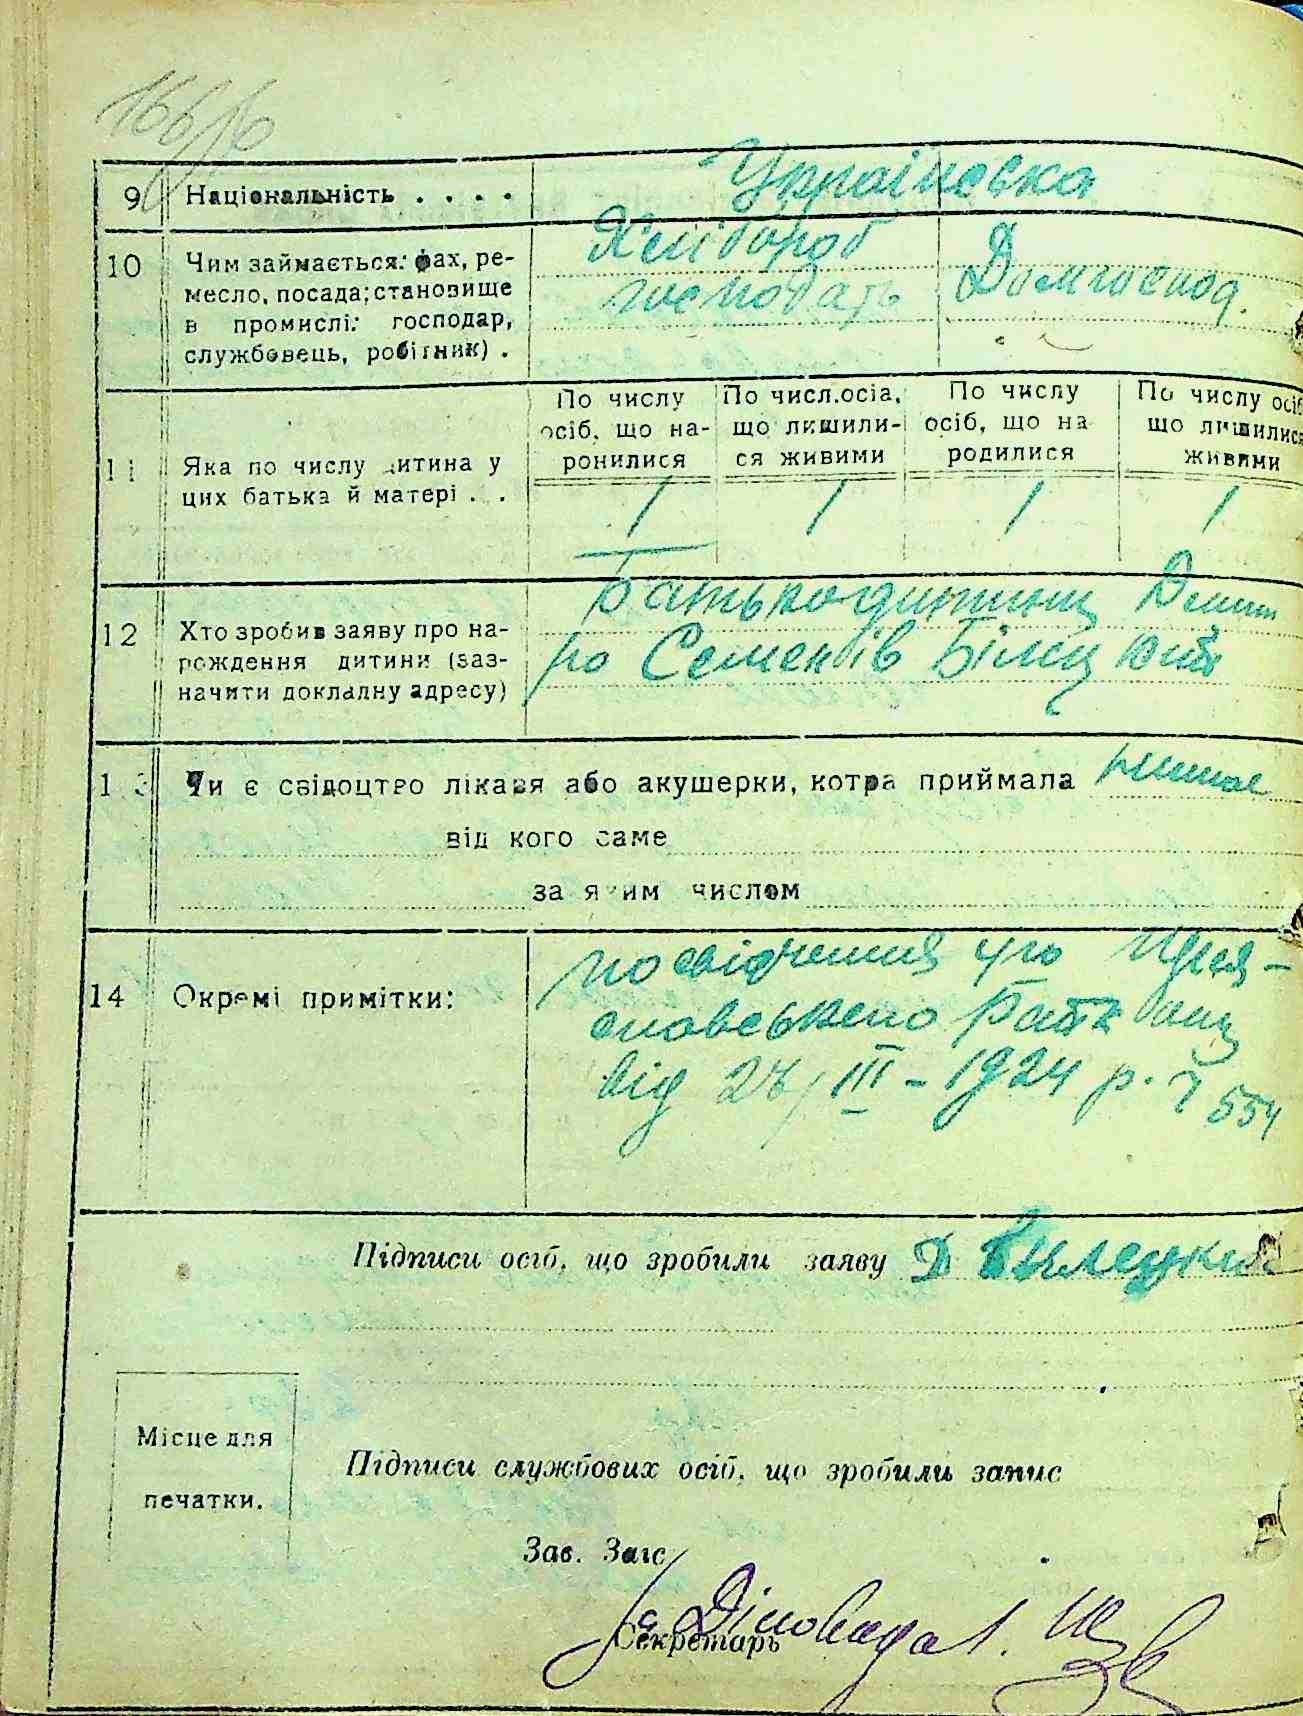 9 Національність . . . . Українська
10 Чим займається: фах, ре-
месло, посада; становище
в промислі: господар,
службовець, робітник) .
Хлібороб
господарь
Домгоспод.
По числу
осіб, що на-
ронилися
По числ.осіа,
що лишили-
ся живими
По числу
осіб, що на
родилися
По числу осіб
що лишилися
живими
11 Яка по числу дитина у
цих батька й матері . .
1 1 1 1
12 Хто зробив заяву про на-
рождення дитини (заз-
начити докладну адресу)
Батько дитини Дмит
ро Семенів Білецький
13 Чи є свідоцтво лікаря або акушерки, котра приймала немає
від кого саме
за яким числом
14 Окремі примітки:
посвідчення
від 24/III – 1924 р. 554
Підписи осіб, що зробили заяву Д Билецкий
Місце для
печатки.
Підписи службових осіб, що зробили запис
Зав. Загс
Секретарь
Діловода